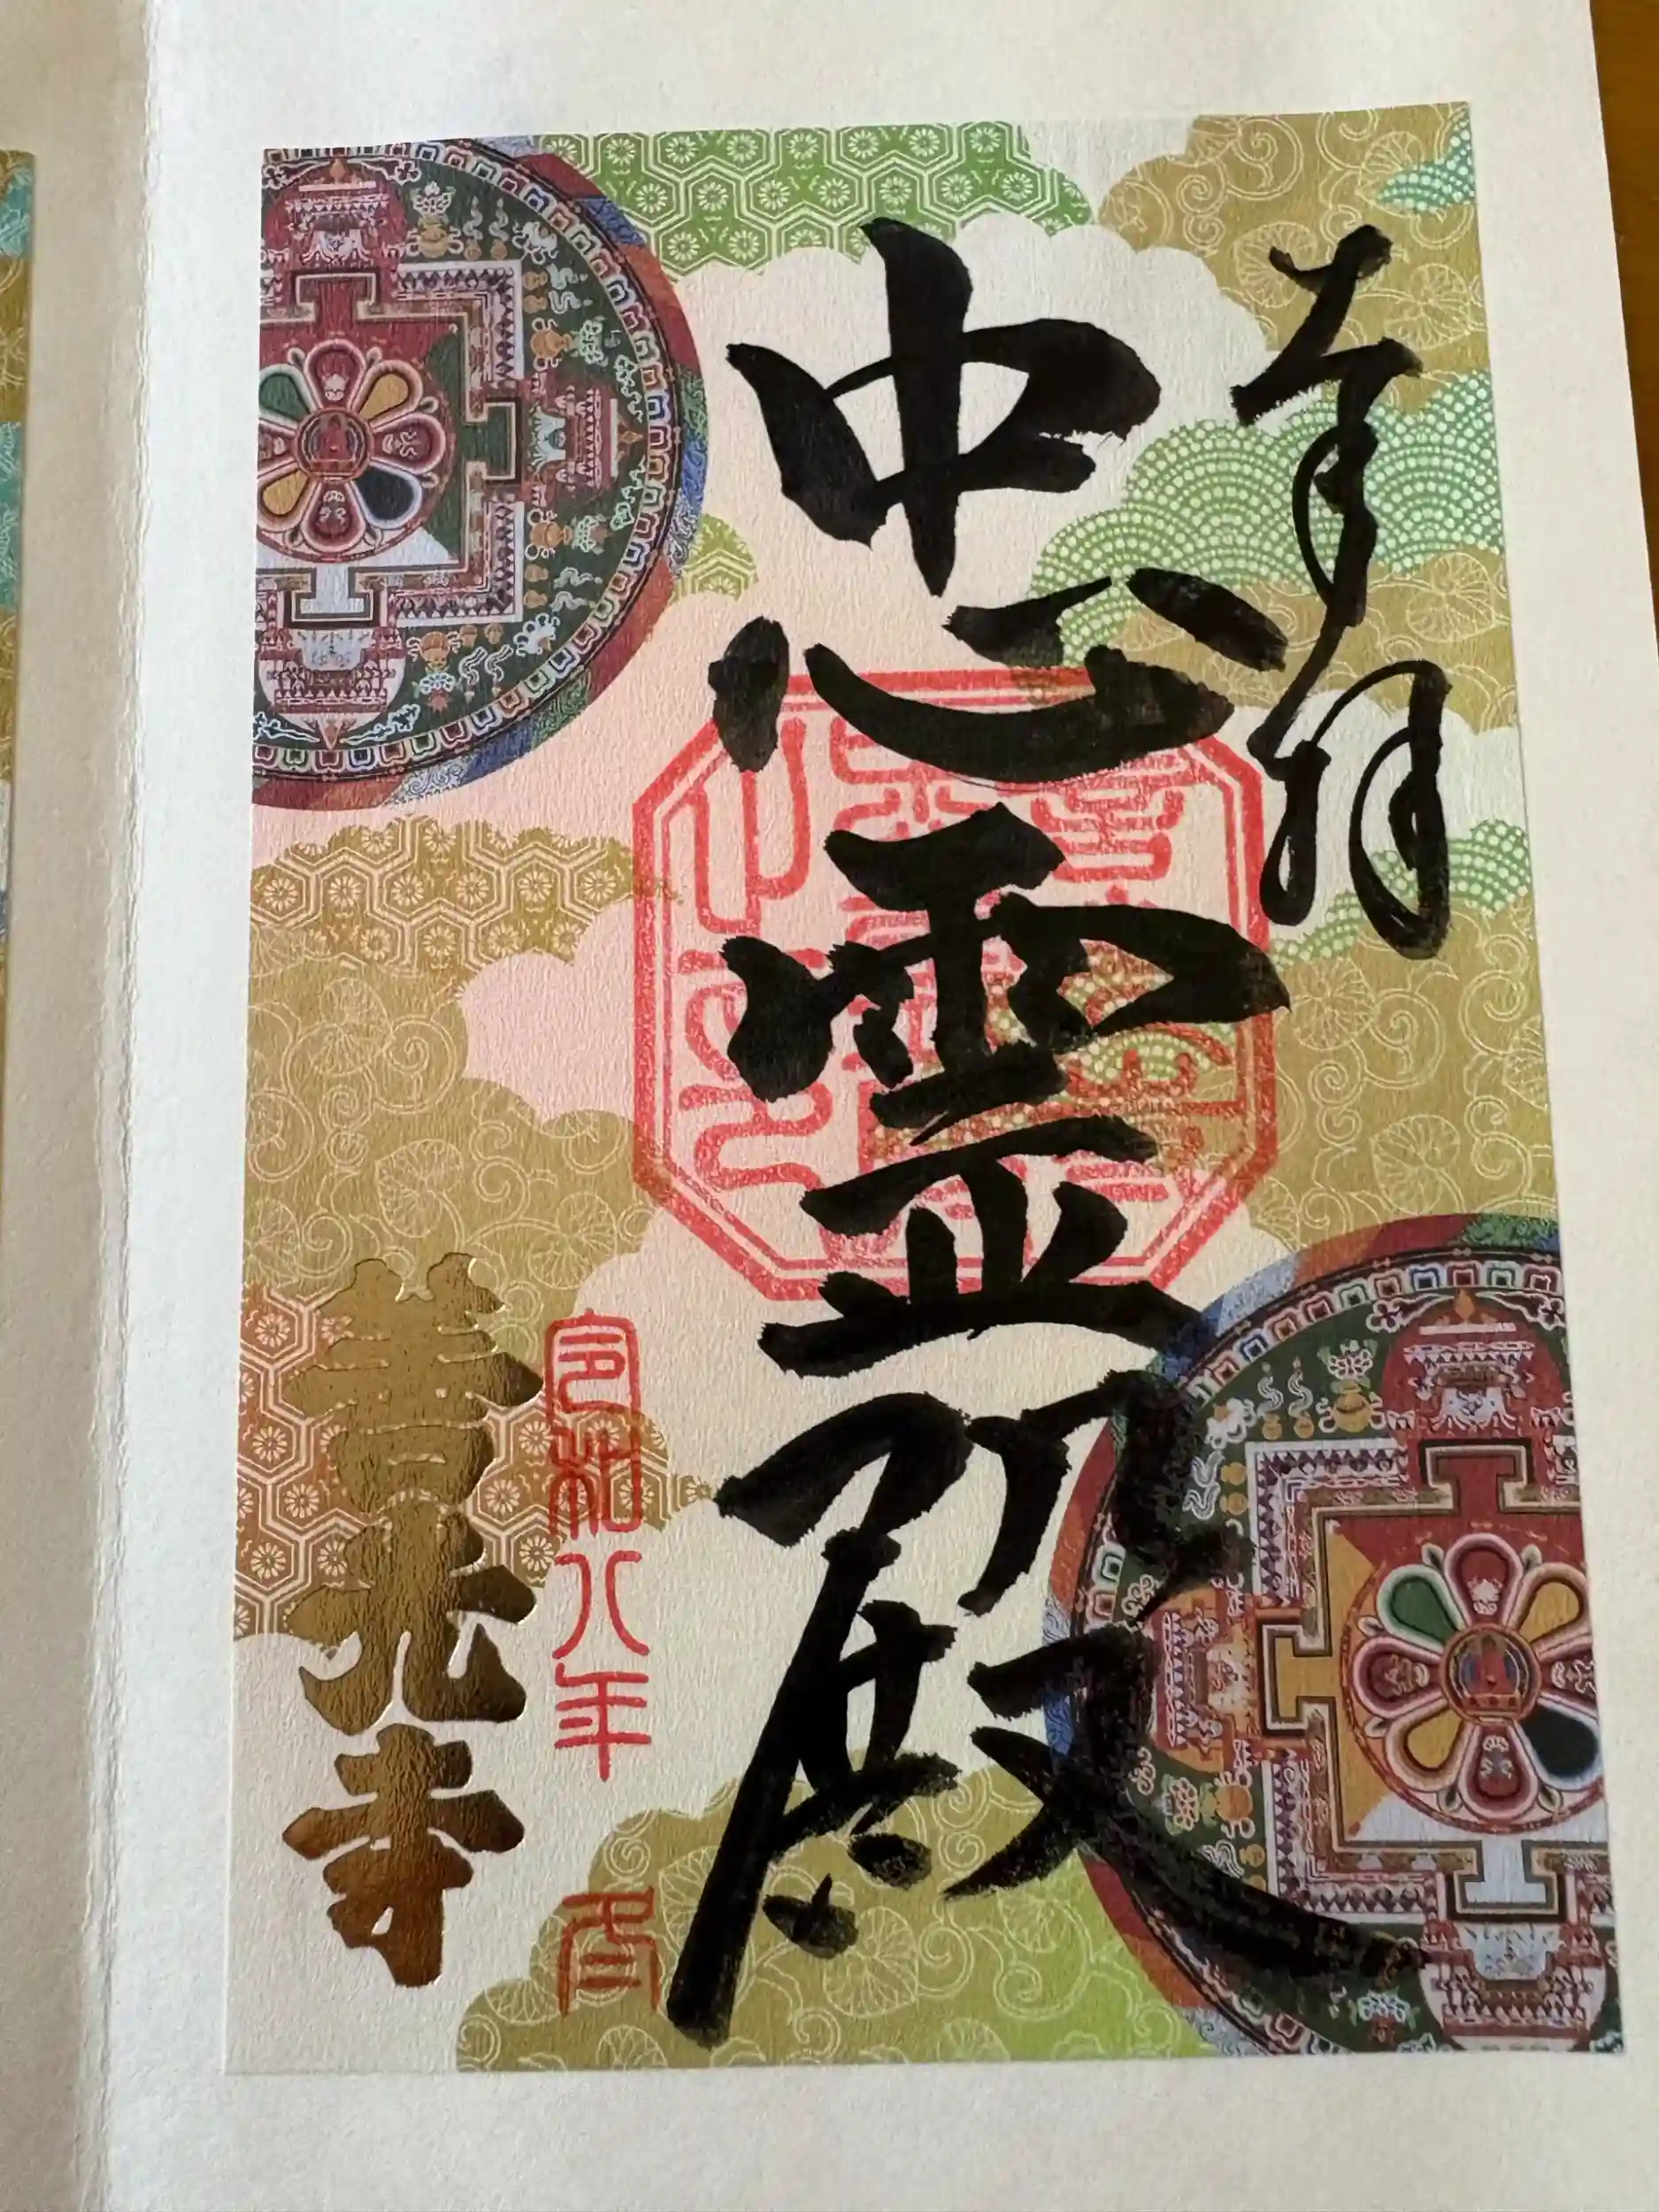 奉拝
忠霊殿
令和八年
善光寺